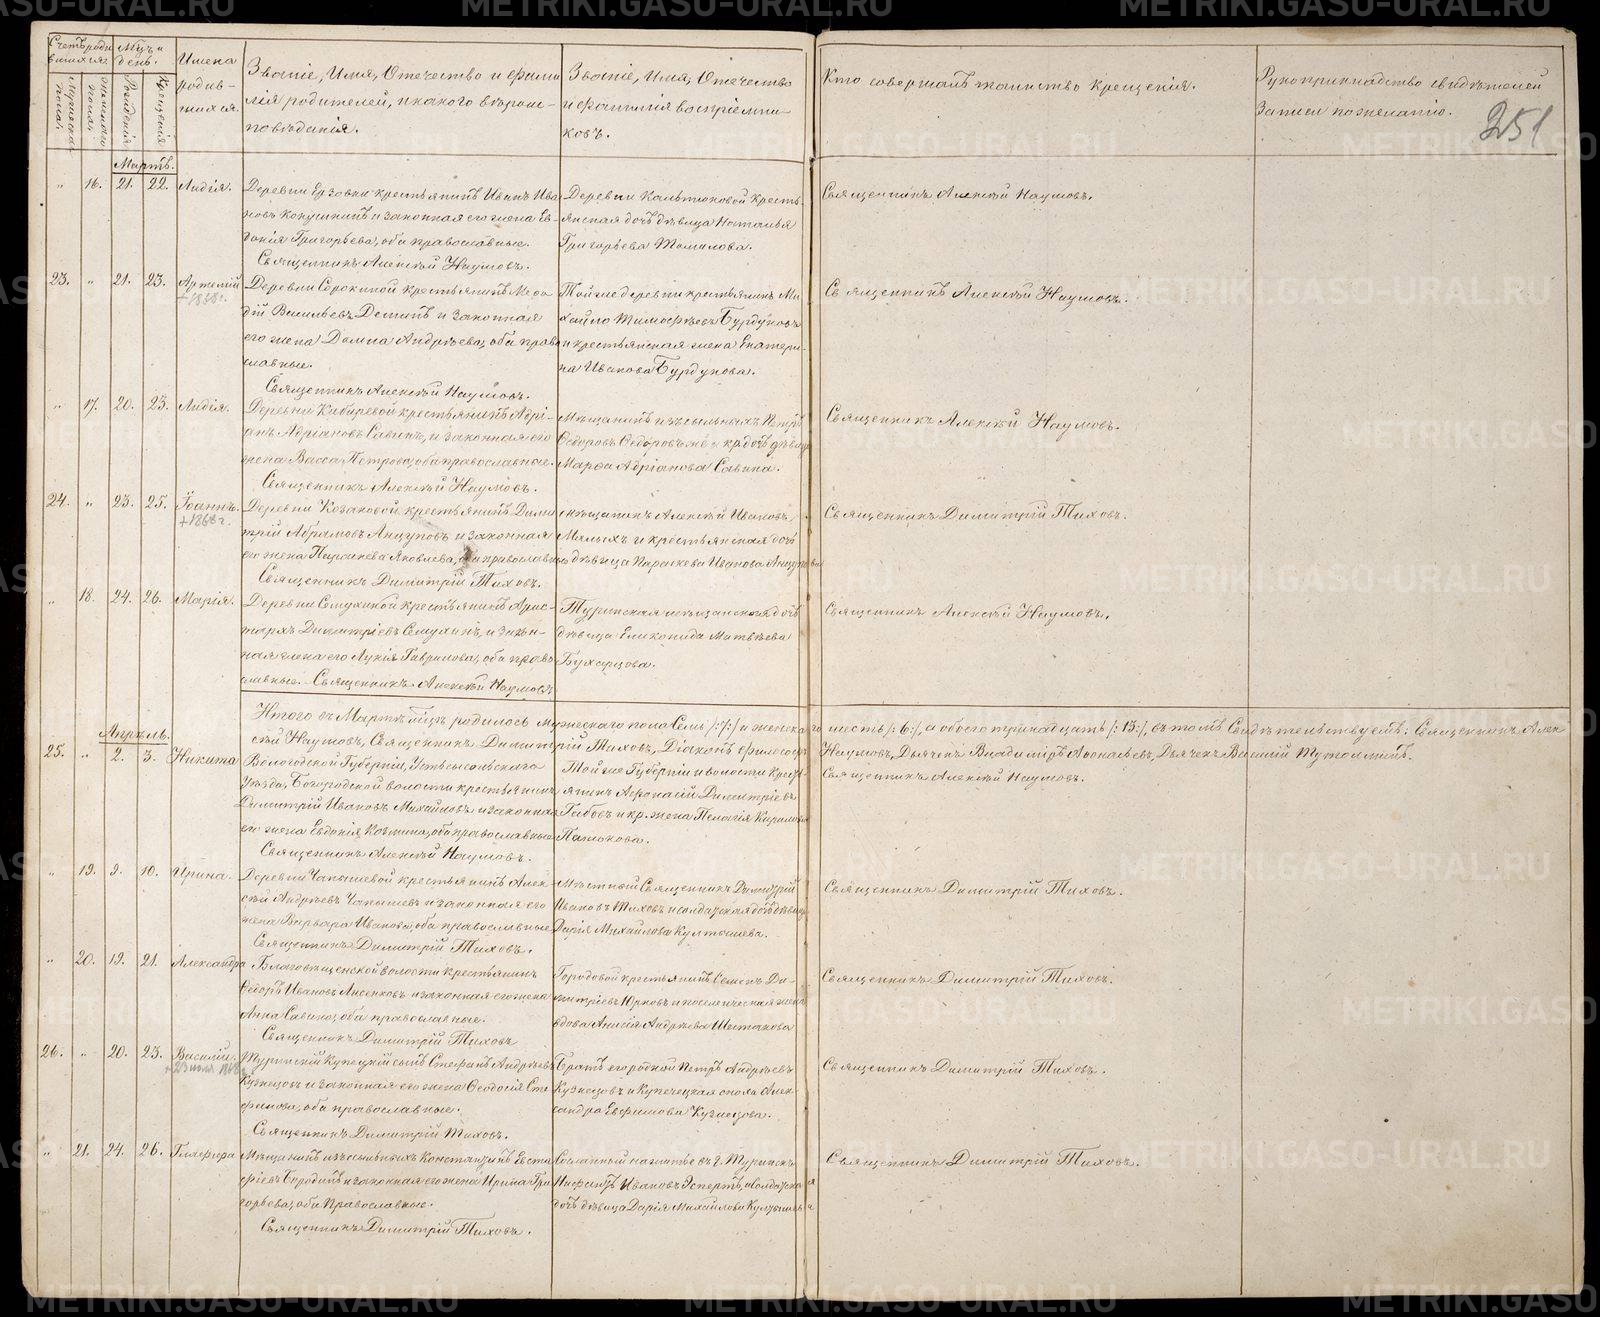 Счетъ роди
вшихся.
Мужескаго
пола.
женскаго
пола.
Мцъ и
день.
Рожденія
Крещенія
Имена
родив-
шихся.
Званіе, Имя, Отечество и фами
лія родителей, и какого вѣроис-
повѣданія.
Званіе, Имя, Отечество
и фамилія воспріемни-
ковъ.
Кто совершалъ таинство крещенія.
Рукоприкладство свидѣтелей
записи по желанію.
251
Мартъ.
" 16. 21. 22. Лидія.
Деревни Ерзовки крестьянинъ Иванъ Ива
новъ Конушкинъ и законная его жена Ев-
докія Григорьева, оба православные.
Священникъ Алексѣй Наумовъ.
Деревни Калтюковой кресть-
янская дочь дѣвица Наталья
Григорьева Томилова.
Священникъ Алексѣй Наумовъ.
23. " 21. 23. Артемій
+1868г.
Деревни Сорокиной крестьянинъ Меѳо
дій Васильевъ Деминъ и законная
его жена Домна Андрѣева, оба право
славные.
Священникъ Алексѣй Наумовъ.
Той же деревни крестьянинъ Ми-
хайло Тимоѳѣевъ Бурдуковъ
и крестьянская жена Екатери-
на Иванова Бурдукова.
Священникъ Алексѣй Наумовъ.
" 17. 20. 23. Лидія.
Деревни Кибиревой крестьянинъ Адрі-
анъ Адріановъ Савинъ, и законная его
жена Васса Петрова, оба православные.
Священникъ Алексѣй Наумовъ.
Мѣщанинъ изъ ссыльныхъ Петръ
Ѳедоровъ Ѳедоровъ же и кр. дочь дѣвица
Марѳа Адріанова Савина.
Священникъ Алексѣй Наумовъ.
24. " 23. 25. Іоаннъ.
+1868г.
Деревни Козаковой крестьянинъ Дими
трій Абрамовъ Анцуповъ и законная
его жена Параскева Яковлева, оба православные
Священникъ Димитрій Тиховъ.
Мѣщанинъ Алексѣй Ивановъ
Малыхъ и крестьянская дочь
дѣвица Параскева Иванова Анцупова
Священникъ Димитрій Тиховъ.
" 18. 24. 26. Марія.
Деревни Семухиной крестьянинъ Арис-
тархъ Димитріевъ Семухинъ, и закон-
ная жена его Лукія Гаврилова, оба право
славные. Священникъ Алексѣй Наумовъ
Туринская мѣщанская дочь
дѣвица Еликонида Матвѣева
Бухарцова.
Священникъ Алексѣй Наумовъ.
Итого въ Мартѣ мцѣ родилось мужескаго пола Семь /:7:/ и женскаго шесть /:6:/, а обоего тринадцать /:13:/, въ томъ Свидѣтельствуемъ: Священникъ Алек
сѣй Наумовъ, Священникъ Димитрій Тиховъ, Діаконъ Наумовъ, Дьячекъ Владиміръ Аѳонасьевъ, Дьячекъ Василій
Апрѣль.
25. " 2. 3. Никита
Вологодской Губерніи, Устьсысольскаго
Уѣзда, Богородской волости крестьянинъ
Димитрій Ивановъ Михайловъ и законная
его жена Евдокія Козьмина, оба православные
Священникъ Алексѣй Наумовъ.
Той же Губерніи и волости Кресть-
янинъ Аѳонасій Димитріевъ
Габовъ и кр. жена Пелагія Кирилова
Пашокова.
Священникъ Алексѣй Наумовъ.
" 19. 9. 10. Ирина.
Деревни Чапышевой крестьянинъ Алек-
сѣй Андрѣевъ Чапышевъ и законная его
жена Варвара Иванова, оба православные
Священникъ Димитрій Тиховъ.
Мѣстной Священникъ Димитрій
Ивановъ Тиховъ и солдатская дочь дѣвица
Дарія Михайлова Култышева.
Священникъ Димитрій Тиховъ.
" 20. 19. 21. Александра
Благовѣщенской волости крестьянинъ
Ѳедоръ Ивановъ Аксенковъ и законная его жена
Анна Савина, оба православные.
Священникъ Димитрій Тиховъ
Городовой крестьянинъ Семенъ Ди-
митріевъ Юрковъ и поселенческая жена
вдова Анисія Андрѣева Шестакова
Священникъ Димитрій Тиховъ.
26. " 20. 23. Василій.
Туринскій Купецкій сынъ Стефанъ Андрѣевъ
Кузнецовъ и законная его жена Ѳеодосія Сте
фанова, оба православные.
Священникъ Димитрій Тиховъ.
Братъ его родной Петръ Андрѣевъ
Кузнецовъ и Купечецкая сноха Алек-
сандра Евфимова Кузнецова.
Священникъ Димитрій Тиховъ.
" 21. 24. 26. Глафира
Мѣщанинъ изъ ссыльныхъ Константинъ Евста
фіевъ Бородинъ и законная его жена Ирина Гри
горьева, оба Православные.
Священникъ Димитрій Тиховъ.
Сосланный на житье въ г. Туринскъ
Ивановъ Эспертъ, и солдатская
дочь дѣвица Дарія Михайлова Култышева
Священникъ Димитрій Тиховъ.
METRIKI.GASO-URAL.RU